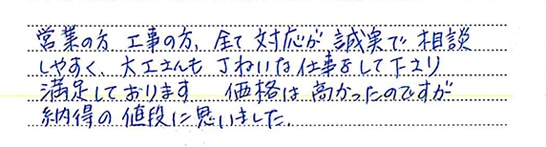 営業の方 工事の方、全て 対応が 誠実で 相談
しやすく、大工さんも 丁ねいな仕事をして下さり
満足しております 価格は 高かったのですが
納得の 値段に思いました.